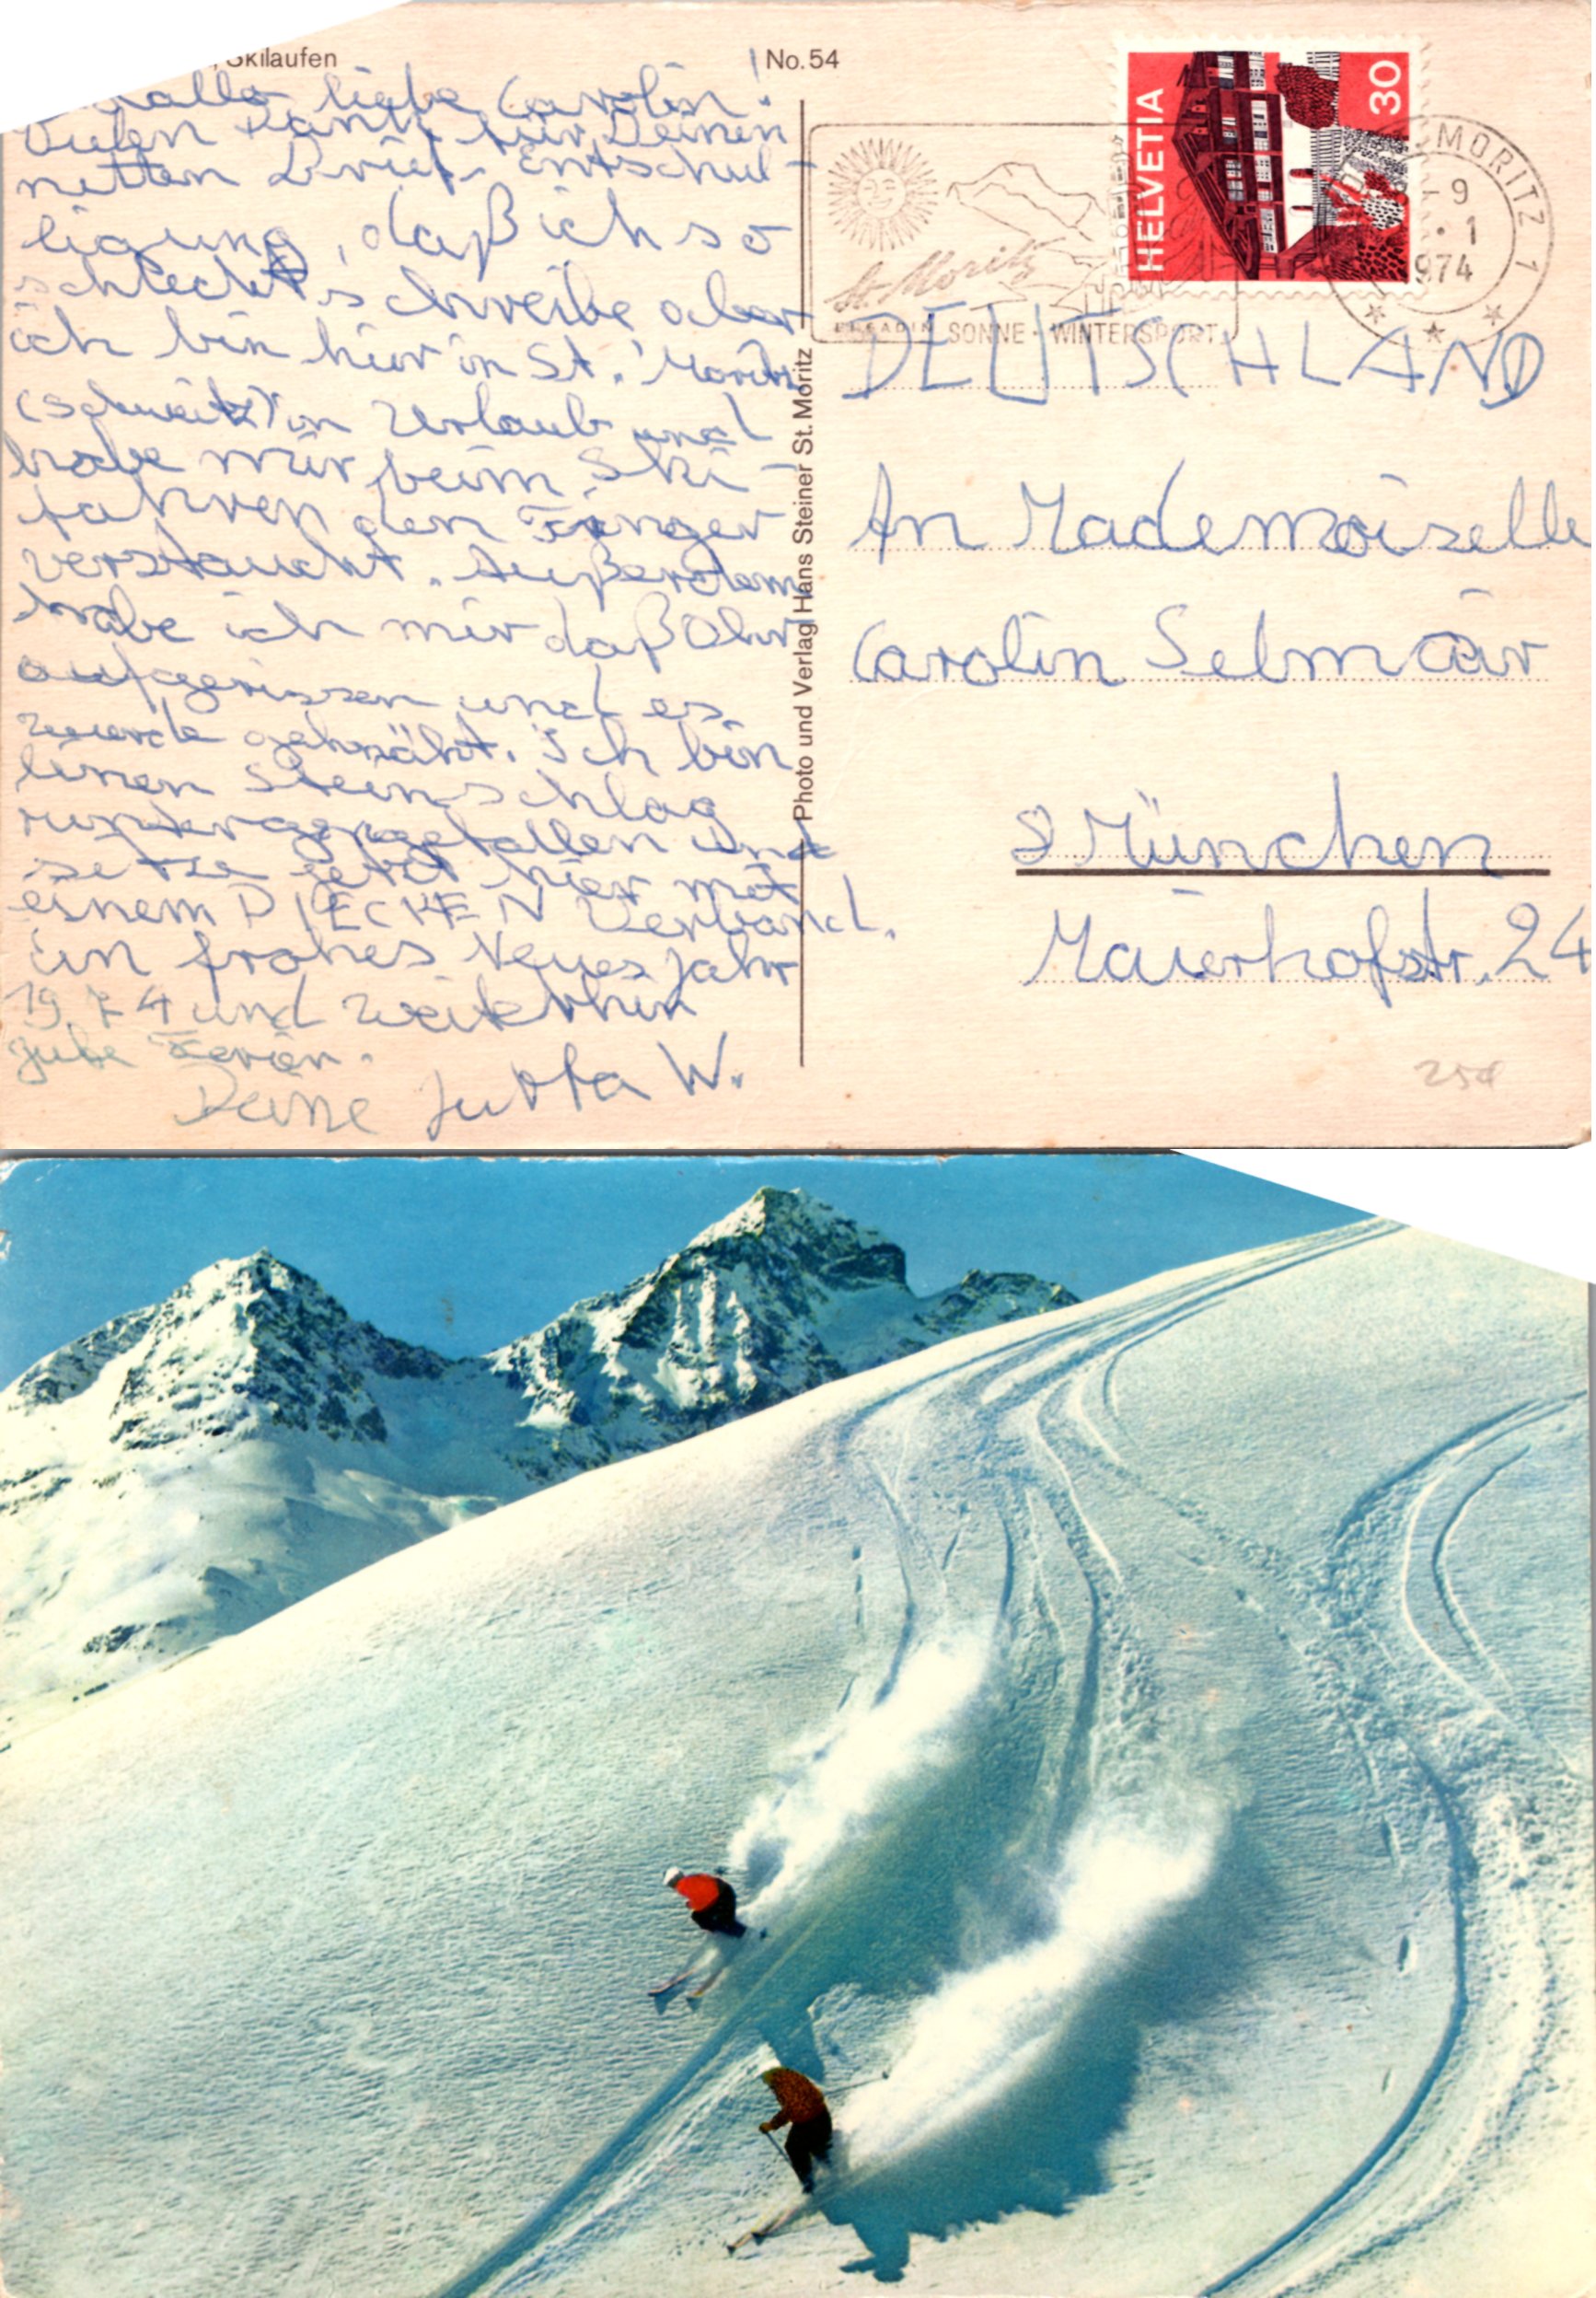 , Skilaufen
No. 54
Hallo liebe Carolin!
Vielen Dank für Deinen
netten Brief. Entschul-
ligung, daß ich so
schlecht schreibe aber
ich bin hier in St. Moritz
(Schweitz) in Urlaub und
habe mir beim Ski-
fahren den Finger
verstaucht. Außerdem
habe ich mir daß Ohr
aufgerissen und es
wurde genäht. Ich bin
einen Steinschlag
runtergefallen und
setze jetzt hier mit
einem DICKEN Verband.
Ein frohes Neues Jahr
1974 und weiterhin
gute Ferien.
Deine Jutta W.
Photo und Verlag Hans Steiner St. Moritz
HELVETIA
30
St. Moritz
ENGADIN SONNE · WINTERSPORT
MORITZ 1
-9
1
974
DEUTSCHLAND
An Mademoiselle
Carolin Selmär
8 München
Maierhofstr. 24